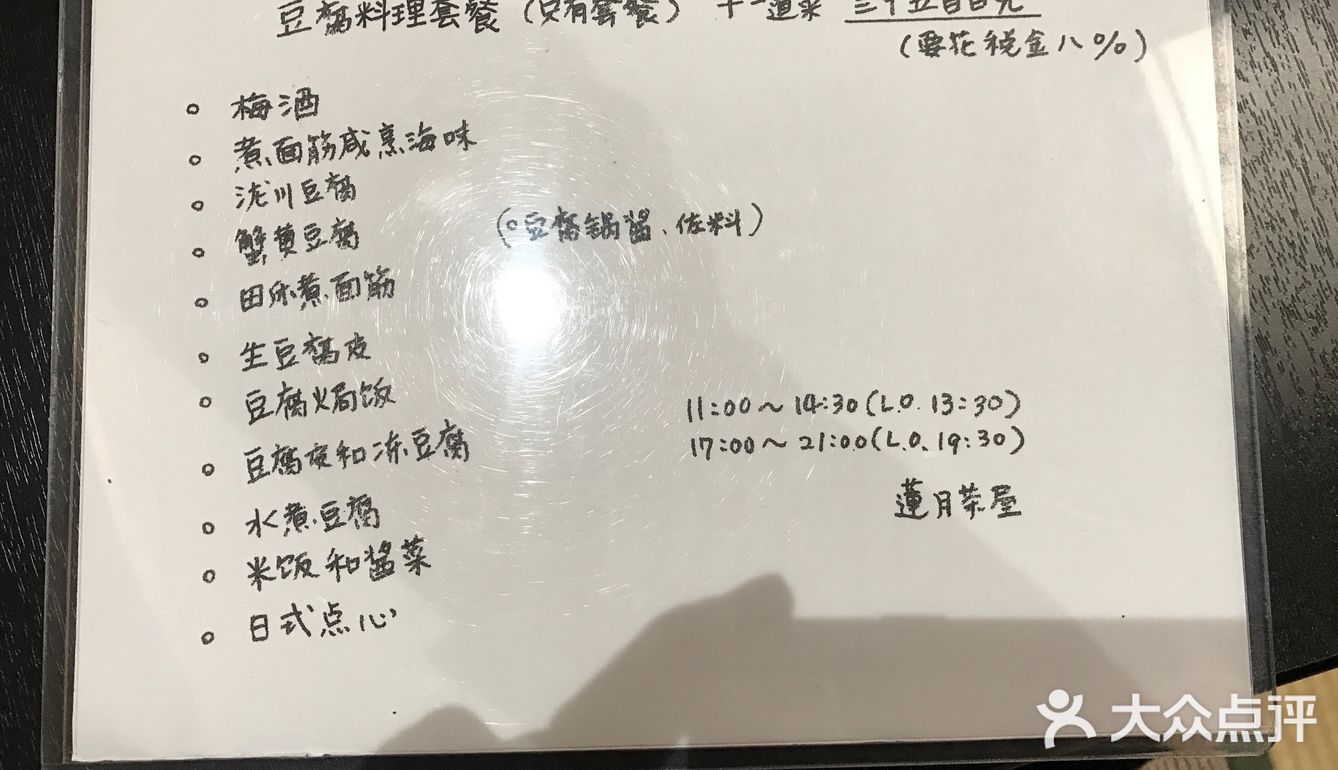 豆腐料理套餐（只有套餐） 十一道菜 三千五百日元
（要花税金八%）
梅酒
煮面筋咸烹海味
泷川豆腐
蟹黄豆腐 （豆腐锅酱、佐料）
田乐煮面筋
生豆腐皮
豆腐火局饭
豆腐皮和冻豆腐
水煮豆腐
米饭和酱菜
日式点心
11:00～14:30(L.O.13:30)
17:00～21:00(L.O.19:30)
蓮月茶屋
大众点评